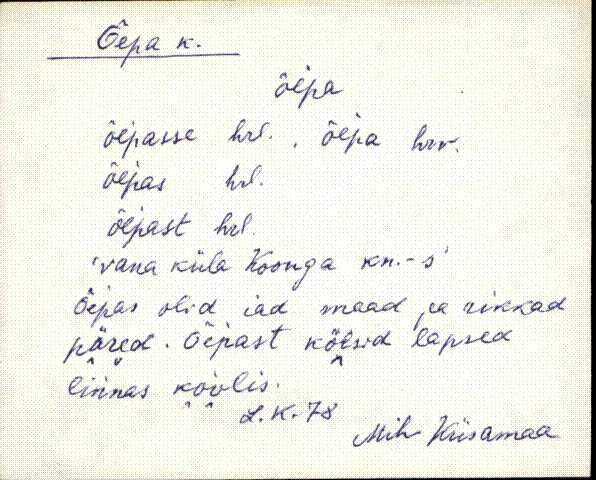 Õepa k.
õepa
õepasse hrl. , õepa hrv.
õepas hrl.
õepast hrl.
'vana küla Koonga kn.-s'
Õepas olid iad maad ja rikkad
päred. Õepast kõisid lapsed
linnas koolis.
L.K. 78
Mih Kiisamaa